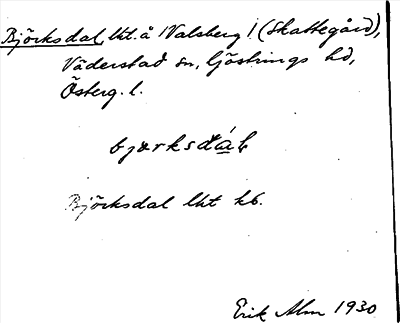 Björksdal, lht. å Valsberg 1 (Skattegård),
Väderstad sn, Göstrings hd,
Österg. l.
bjœrksdáḷ
Björksdal lht kb.
Erik Alm 1930